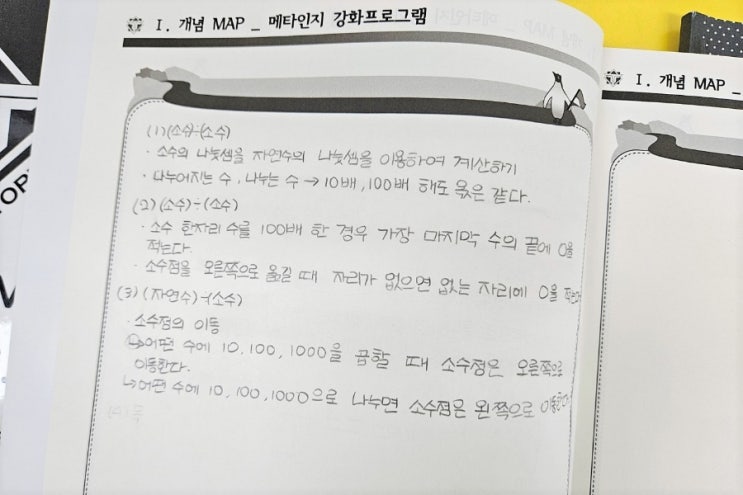 I. 개념 MAP _ 메타인지 강화프로그램
(1) (소수)÷(소수)
· 소수의 나눗셈을 자연수의 나눗셈을 이용하여 계산하기
· 나누어지는 수, 나누는 수 → 10배, 100배 해도 몫은 같다.
(2) (소수)÷(소수)
· 소수 한자리 수를 100배 한 경우 가장 마지막 수의 끝에 0을
적는다.
· 소수점을 오른쪽으로 옮길 때 자리가 없으면 없는 자리에 0을 적는다
(3) (자연수)÷(소수)
· 소수점의 이동
↳어떤 수에 10, 100, 1000을 곱할 때 소수점은 오른쪽으로
이동한다.
↳어떤 수에 10, 100, 1000으로 나누면 소수점은 왼쪽으로 이동한다
I. 개념 MAP _